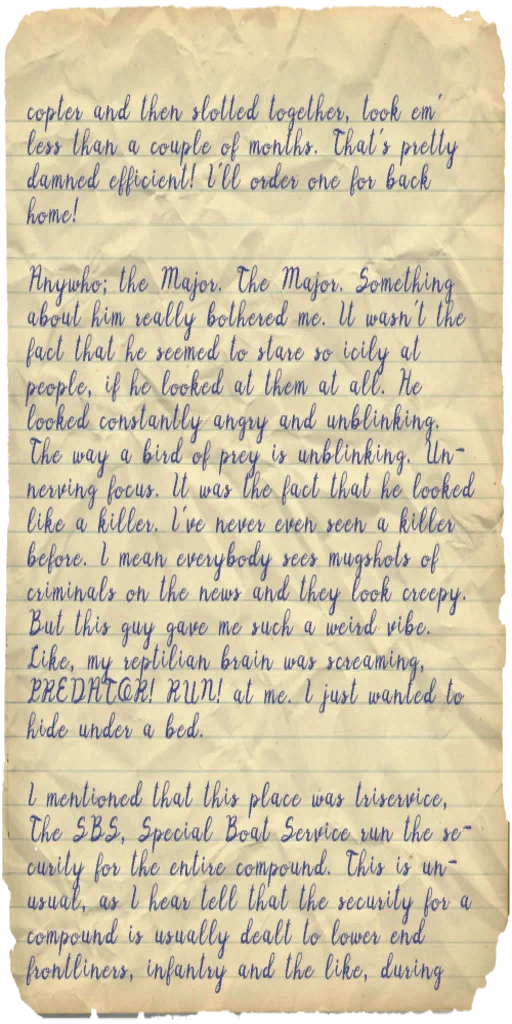 copter and then slotted together, took em'
less than a couple of months. That's pretty
damned efficient! I'll order one for back
home!
Anywho; the Major. The Major. Something
about him really bothered me. It wasn't the
fact that he seemed to stare so icily at
people, if he looked at them at all. He
looked constantly angry and unblinking.
The way a bird of prey is unblinking. Un-
nerving focus. It was the fact that he looked
like a killer. I've never even seen a killer
before. I mean everybody sees mugshots of
criminals on the news and they look creepy.
But this guy gave me such a weird vibe.
Like, my reptilian brain was screaming,
PREDATOR! RUN! at me. I just wanted to
hide under a bed.
I mentioned that this place was triservice,
The SBS, Special Boat Service run the se-
curity for the entire compound. This is un-
usual, as I hear tell that the security for a
compound is usually dealt to lower end
frontliners, infantry and the like, during